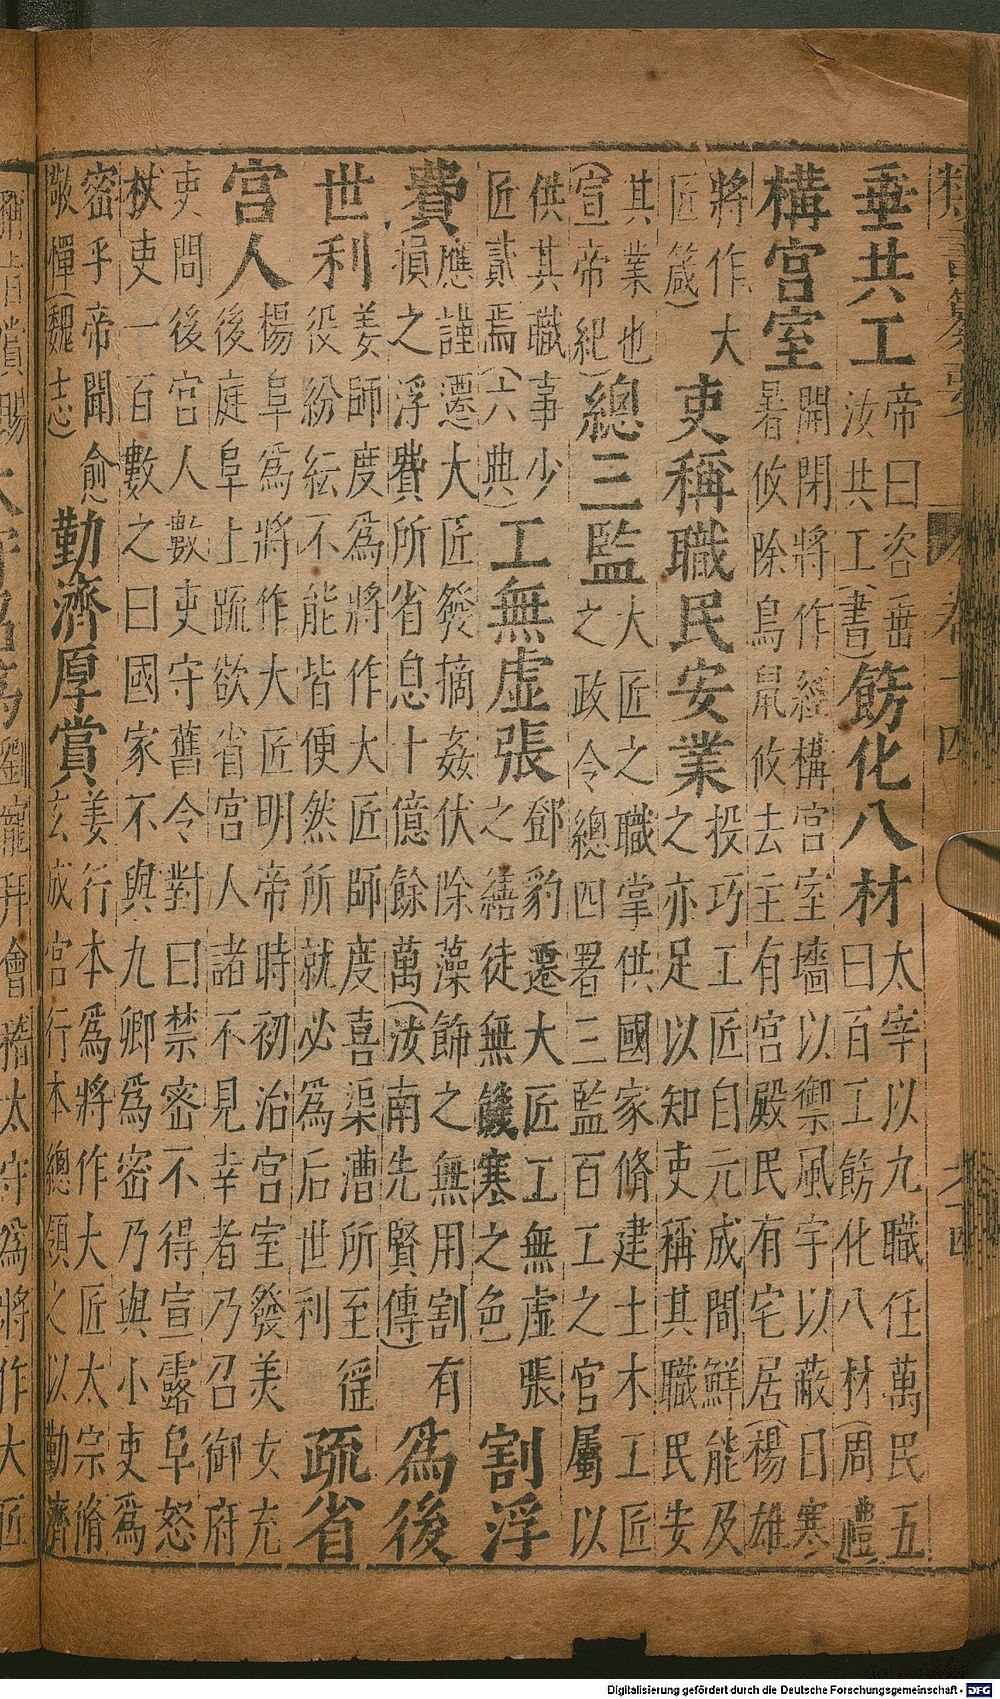 類書纂要 卷十四
垂共工帝曰咨垂汝共工(書)飭化八材太宰以九職任萬民五曰百工飭化八材(周禮)
構宮室開閉將作經構宮室墻以禦風宇以蔽日寒暑攸除鳥鼠攸去主有宮殿民有宅居(楊雄
將作大匠箴)吏稱職民安業投巧工匠自元成間鮮能及之亦足以知吏稱其職民安
其業也(宣帝紀)總三監大匠之職掌供國家脩建土木工匠之政令總四署三監百工之官屬以
供其職事少匠貳焉(六典)工無虛張鄧豹遷大匠工無虛張之繕徒無饑寒之色割浮
費應謹遷大匠發摘姦伏除藻飾之無用割有損之浮費所省息十億餘萬(汝南先賢傳)為後
世利姜師度為將作大匠師度喜渠漕所至徭役紛紜不能皆便然所就必為后世利疏省
宮人楊阜為將作大匠明帝時初治宮室發美女充後庭阜上疏欲省宮人諸不見幸者乃召御府
吏問後宮人數吏守舊令對曰禁密不得宣露阜怒杖吏一百數之曰國家不與九卿為密乃與小吏為
密乎帝聞愈敬憚(魏志)勤濟厚賞姜行本為將作大匠太宗脩玄成宮行本總領之以勤濟
劉寵拜會稽太守為將作大匠
Digitalisierung gefördert durch die Deutsche Forschungsgemeinschaft - DFG